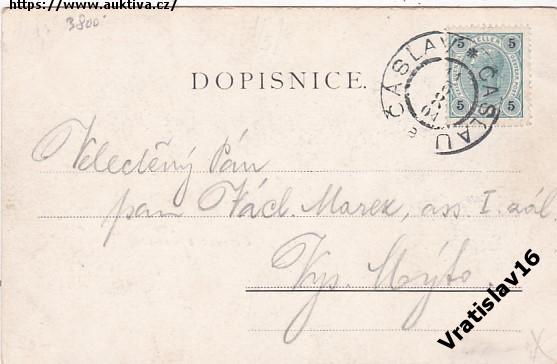 https://www.auktiva.cz/
3800
DOPISNICE.
ČÁSLAV * ČASLAU
5 5
5 5
Velectěný Pán
pan Václ. Marek, ass. I. zál.
Vys. Mýto
Vratislav16